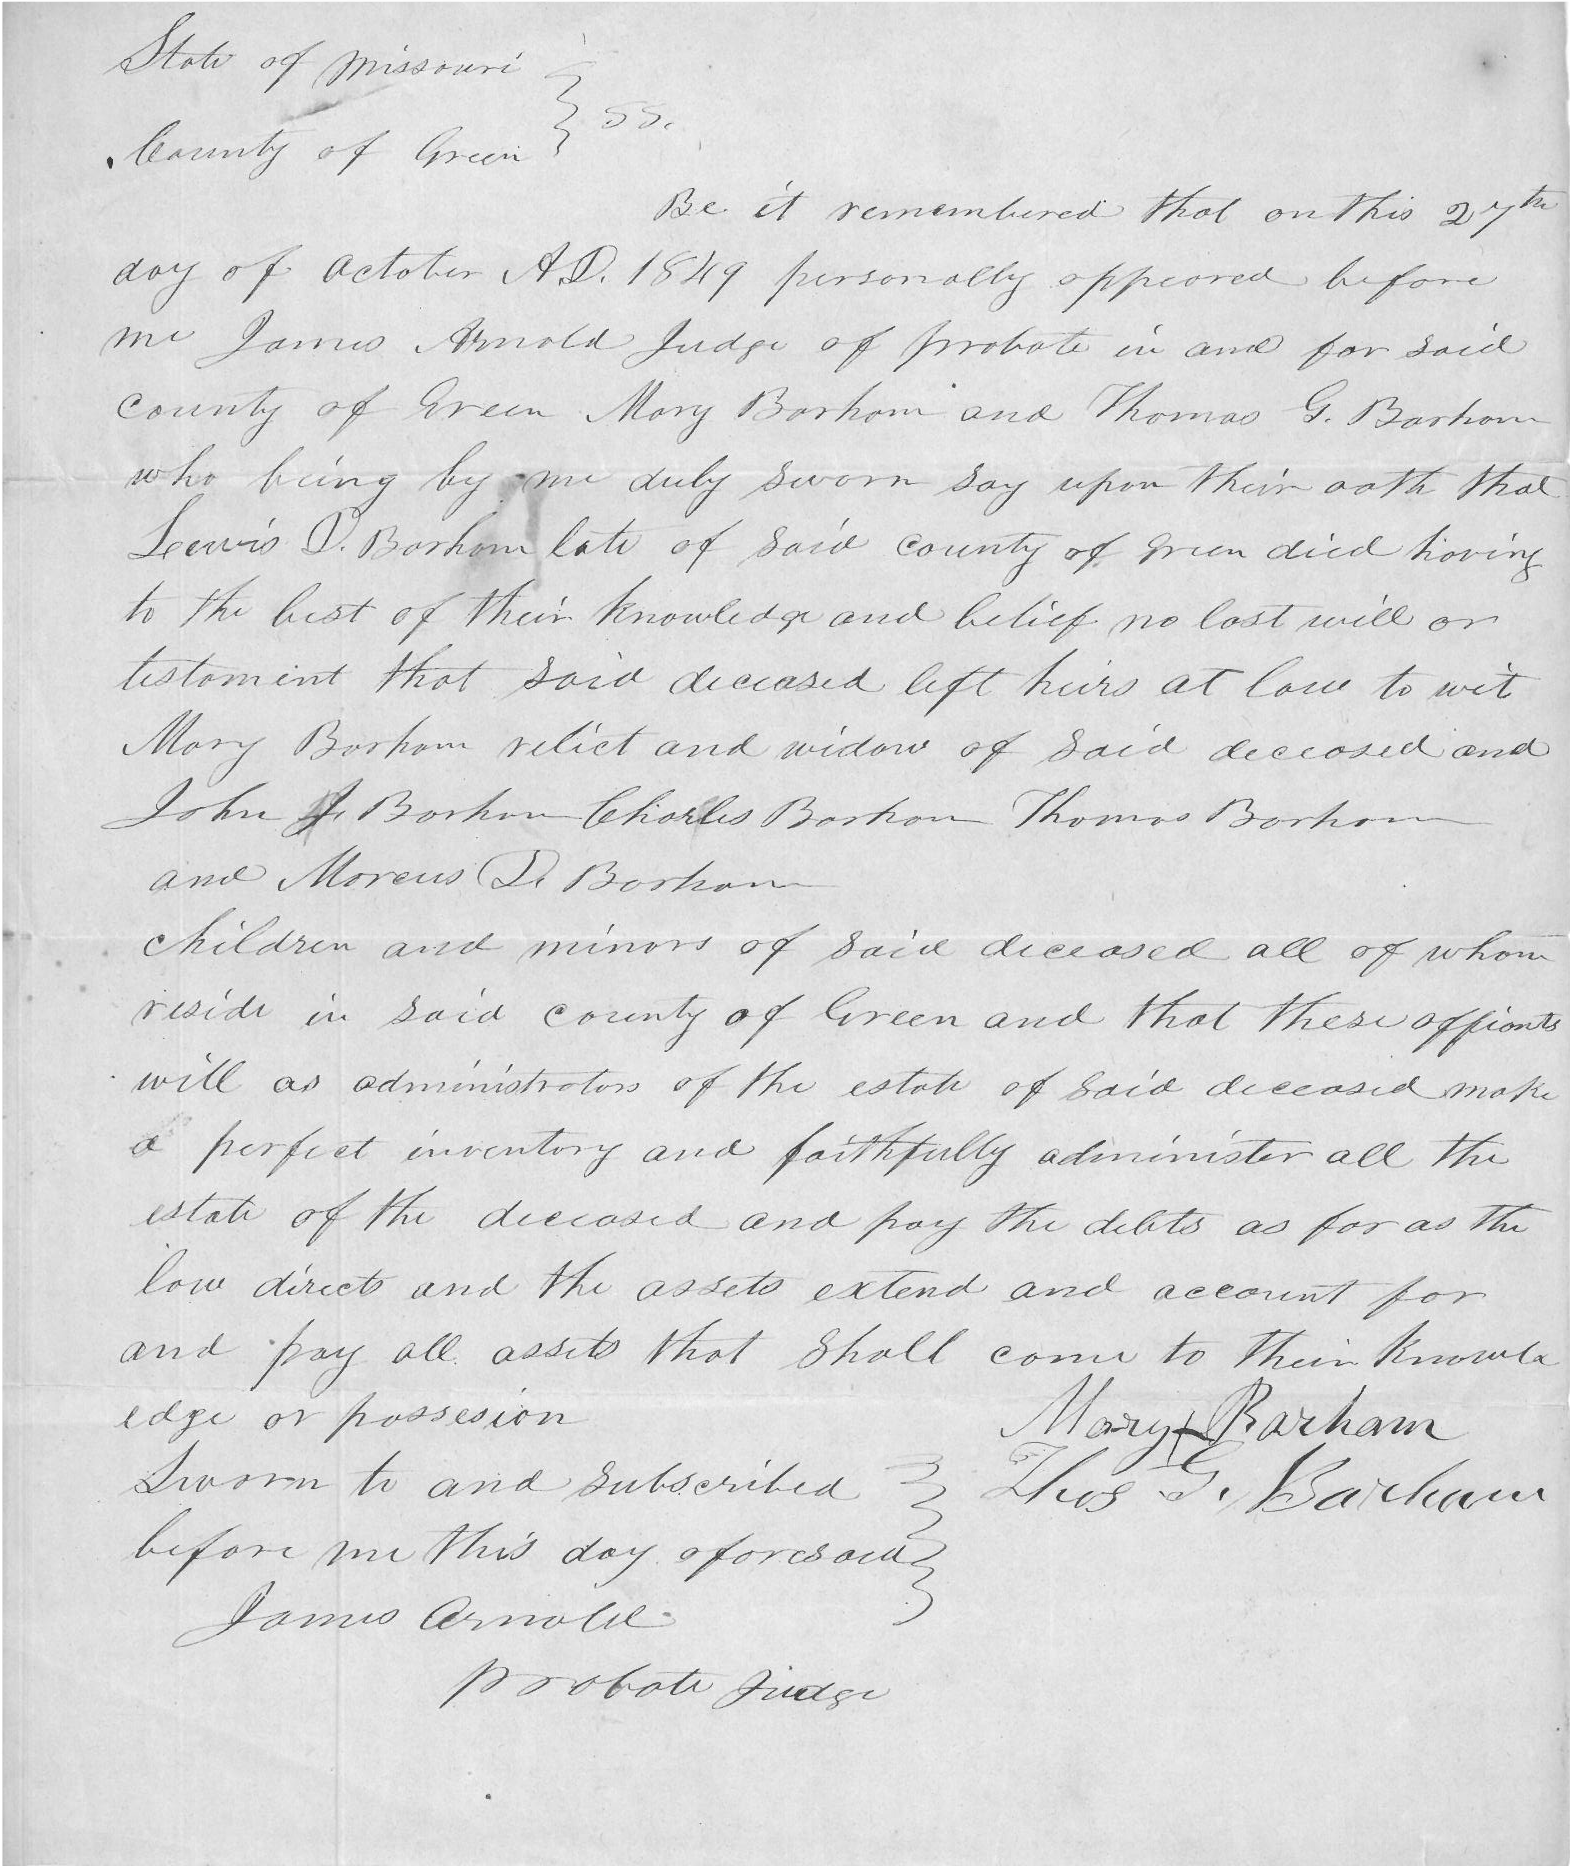 State of Missouri
County of Green } SS.
Be it remembered that on this 27th
day of October A.D. 1849 personally appeared before
me James Arnold Judge of probate in and for said
county of Green Mary Barham and Thomas G. Barham
who being by me duly sworn say upon their oath that
Lewis D. Barham late of said county of Green died having
to the best of their knowledge and belief no last will or
testament that said deceased left heirs at law to wit
Mary Barham relict and widow of said deceased and
John J. Barham Charles Barham Thomas Barham
and Marcus D. Barham
children and minors of said deceased all of whom
reside in said county of Green and that these affiants
will as administrators of the estate of said deceased make
a perfect inventory and faithfully administer all the
estate of the deceased and pay the debts as far as the
law directs and the assets extend and account for
and pay all assets that shall come to their knowle
edge or possesion
Mary X Barham
Thos G. Barham
Sworn to and subscribed
before me this day aforesaid
James Arnold
Probate Judge